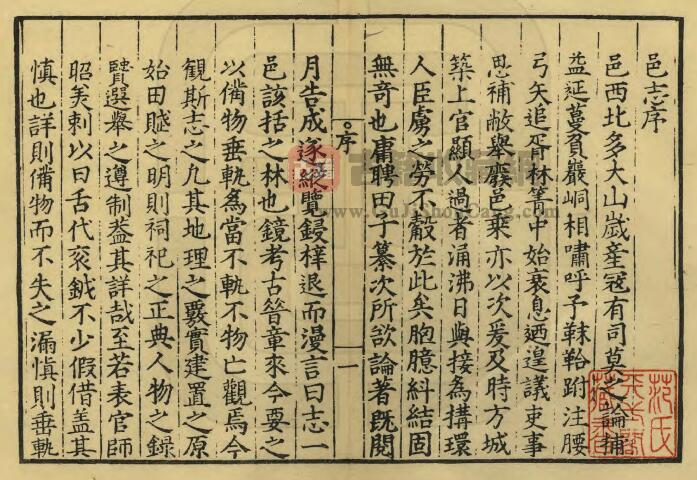 邑志序
邑西北多大山歲產冦有司莫之論補
益延蔓負巖峒相嘯呼予靺鞈跗注腰
弓矢追胥林箐中始衰息廼遑議吏事
思補敝舉廢邑乗亦以次爰及時方城
築上官顯人過者涌沸日與接為搆環
人臣虜之勞不觳於此矣胞臆紏結固
無奇也庸聘田子纂次所欲論著旣閱
月告成遂縱覽鋟梓退而漫言曰志一
邑該括之林也鏡考古昝章來今要之
以備物垂軌為當不軌不物亡觀焉今
觀斯志之凡其地理之覈實建置之原
始田賦之明則祠祀之正典人物之錄
賢選舉之遵制葢其詳哉至若表官師
昭美刺以曰舌代衮鉞不少假借盖其
慎也詳則備物而不失之漏慎則垂軌
序
一
范氏天一閣藏書
www.GuJiShouCang.com